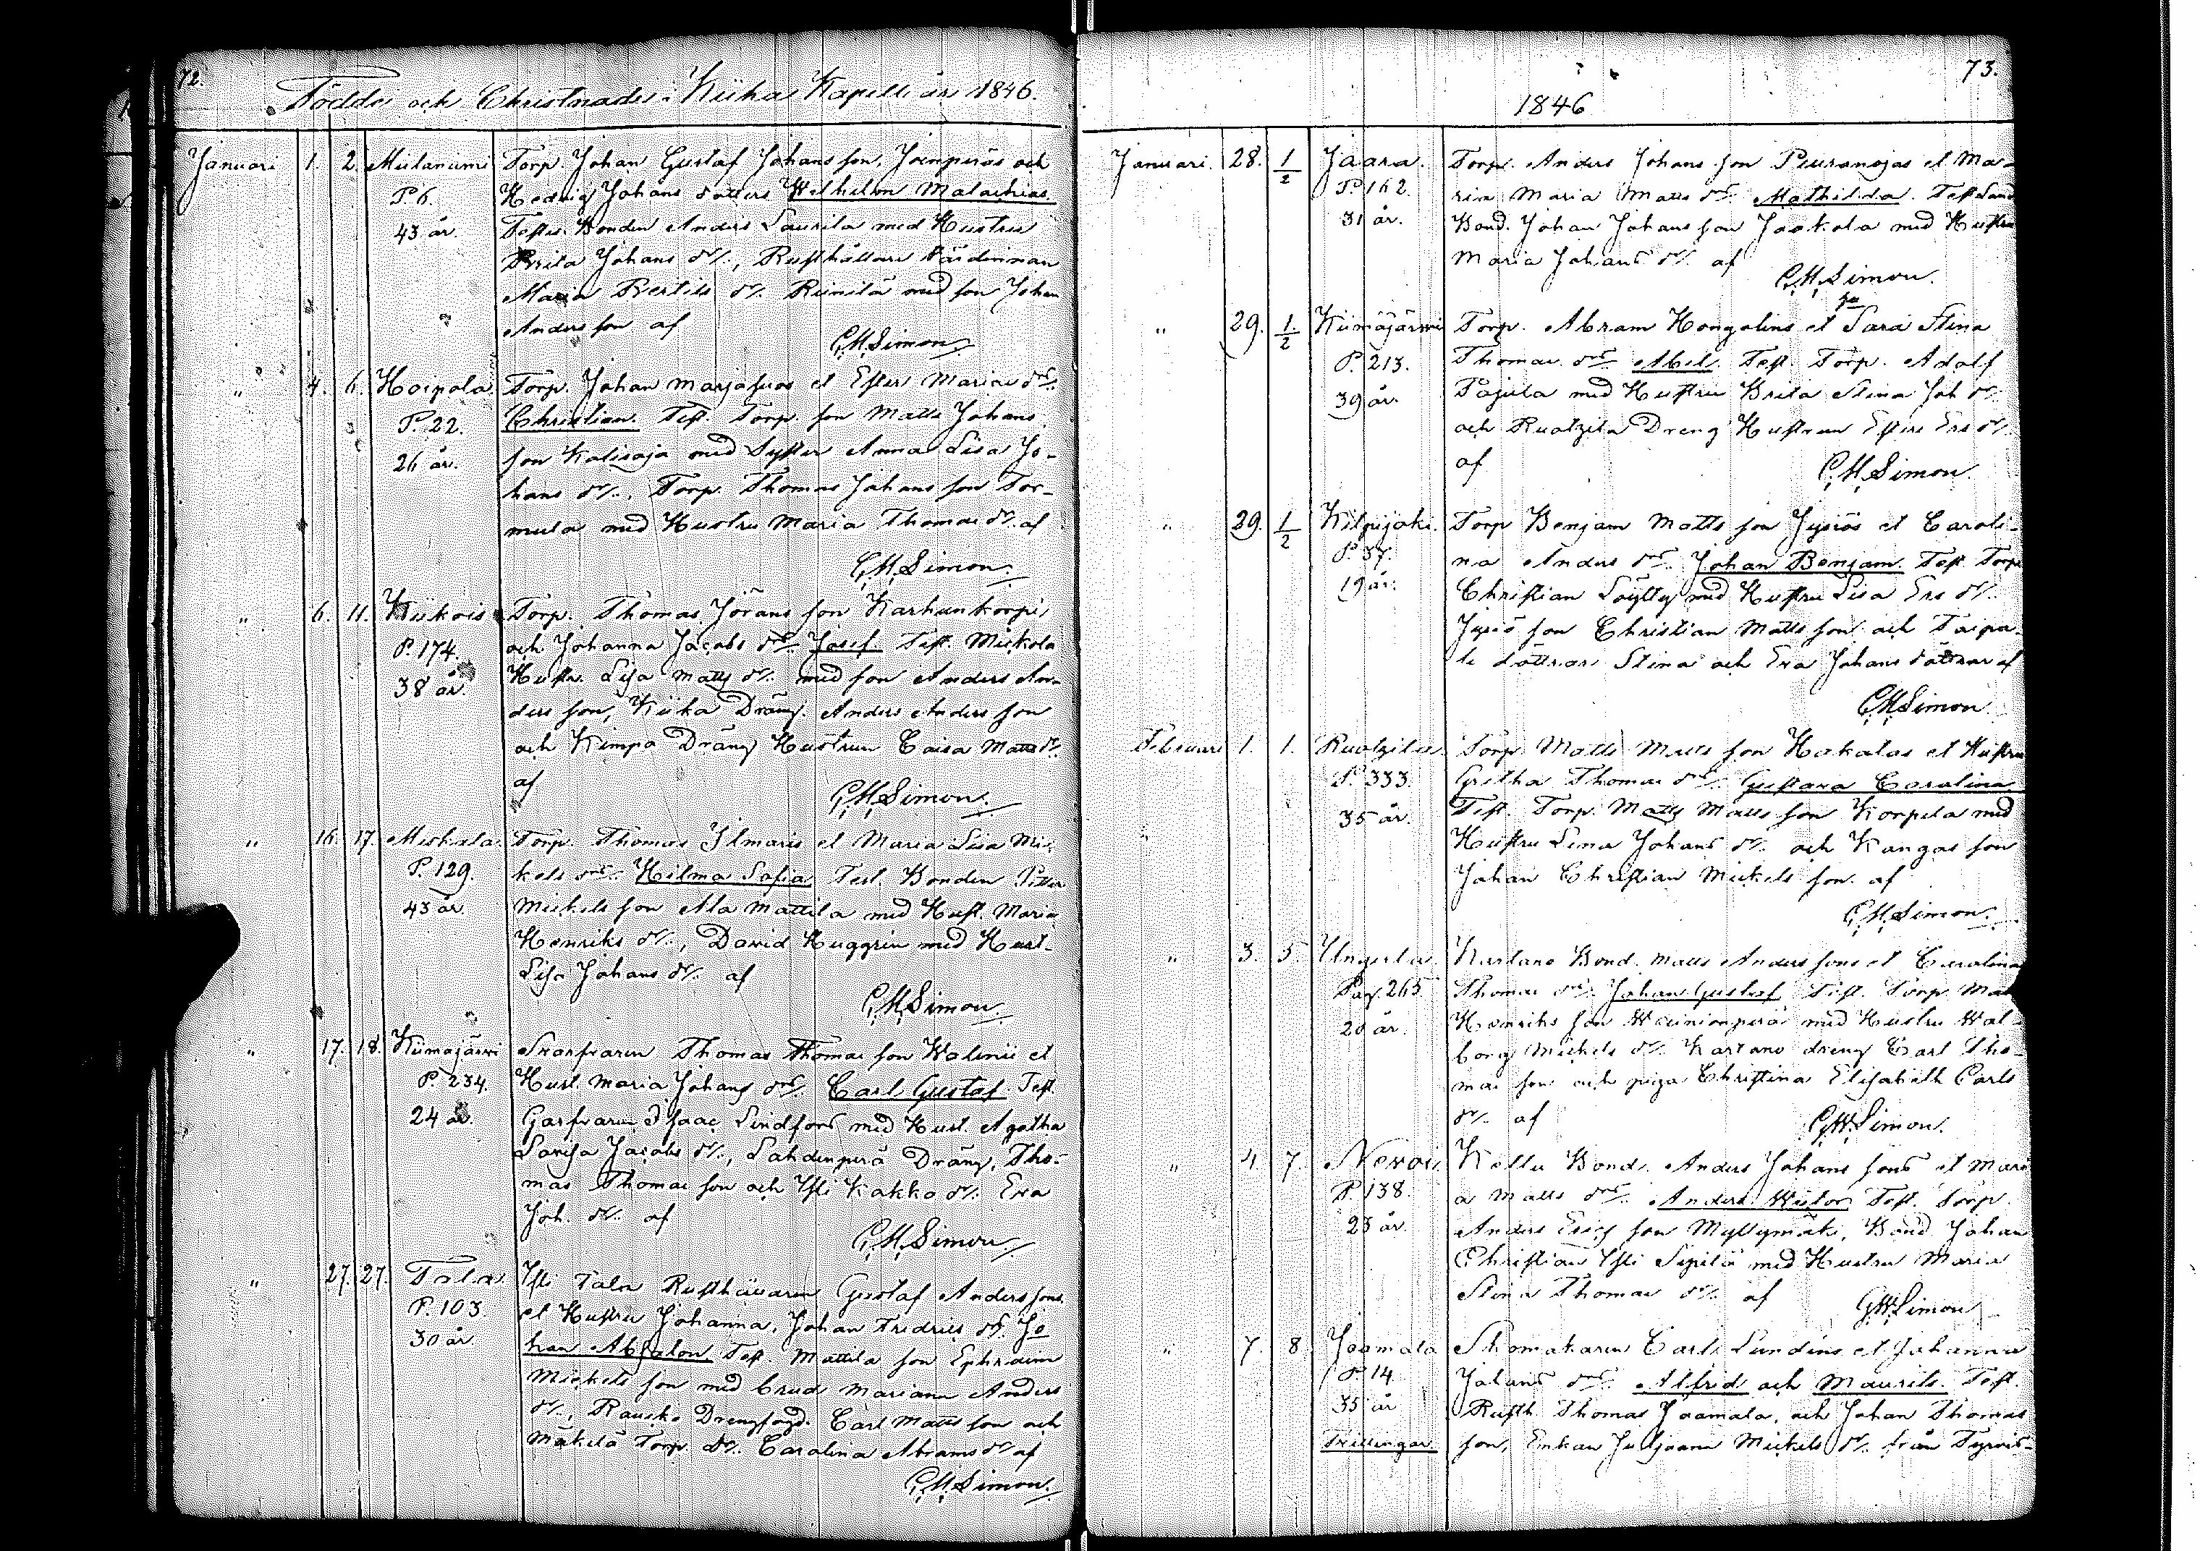 72.
Födde och Christnade i Kiika Kapell år 1846.
Januari 1. 2. Torp. Johan Gustaf Johans son, Joenperäs och
P. 6. Hedvig Johans dotters Wilhelm Malachias.
43 år. Testes Bonden Anders Laurila med Hustru
Brita Johans dr., Rusthållare Värdinnan
Maria Bertils dr. med son Johan
Anders son af
G.M. Simon.
" 4. 6. Hoipola Torp. Johan Marjasuos et Esters Mariae drs.
P. 22. Christian. Test. Torp. son Matts Johans
26 år. son Kalisaja med Syster Anna Lisa Jo-
hans dr., Torp. Thomas Johans son Tor-
mula med Hustru Maria Thomae dr. af
G.M. Simon.
" 6. 11. Kiikois Torp. Thomas Jörans son Karhunkorpi
P. 174. och Johanna Jacobs drs. Josef Test. Mickola
38 år. Hustr. Lisa Matts dr. med son Anders An-
ders son, Kiika Dräng. Anders Anders son
och Kimpa Dräng Hustrun Caisa Matts dr.
af
G.M. Simon.
" 16. 17. Miekala Torp. Thomas Ilmaris et Maria Lisa Mi-
P. 129. kels drs. Hilma Sofia Test. Bonden Petter
43 år. Mickels son Ala Mattila med Hust. Maria
Henriks dr., David Huggrin med Hust.
Lisa Johans dr. af
G.M. Simon.
" 17. 18. Kiimajärvi Svarfvaren Thomas Thomae son Walinii et
P. 234. Hust. Maria Johans drs. Carl Gustaf. Test.
24 år. Garfvaren Isaac Lindfors med Hust. Agatha
Lovisa Jacobs dr., Lahdenperä Dräng, Tho-
mas Thomae son och Ysti Kakko dr. Eva
Joh. dr. af
G.M. Simon
" 27. 27. Tala Ysti Tala Rusthållaren Gustaf Anders sons
P. 103 et Hustru Johanna, Johan Fredrics dr. Jo
30 år han Absalon Test. Mattila son Ephraim
Mickels son med brud Mariana Anders
dr., Rausko Drengfogd. Carl Matts son och
Mäkelä Torp. dr. Carolina Abrams dr. af
G.M. Simon.
73.
1846
Januari. 28. 1/2 Jaara. Torp. Anders Johans son Peuranojas et Ma-
P. 162. ria Maria Matts drs. Mathilda. Test.
31 år. Bond. Johan Johans son Jaakola med Hustru
Maria Johans dr. af
G.M. Simon.
" 29. 1/2 Kiimajärvi Torp. Abram Hongolins et Sara Stina
P. 213. Thomae drs. Abel. Test. Torp. Adolf
39 år. Pajula med Hustru Brita Stina Joh dr.
och Ruotzila Dreng Hustrun Esters Ers dr.
af G.M. Simon.
" 29. 1/2 Kilpijoki. Torp Benjam Matts son Jysiös et Caroli-
P. 37. na Anders drs. Johan Benjam. Test Torp
19 år. Christian Löytty med Hustru Lisa Ers dr.
Jysiö son Christian Matts son och Taipa-
le döttrar Stina och Eva Johans döttrar af
G.M. Simon.
Februari 1. 1. Ruotzila Torp Matts Matts son Hakalas et Hustru
P. 333. Gretha Thomae drs. Gustava Carolina
35 år. Test. Torp. Matts Matts son Korpela med
Hustru Lena Johans dr. och Kangas son
Johan Christian Mickels son. af
G.M. Simon.
" 3. 5. Ungerla Kartano Bond. Matts Anders sons et Carolina
Pag. 265. Thomae drs. Johan Gustaf. Test. Torp. Matts
20 år. Henriks son Wäinionperä med Hustru Wal-
borg Mickels dr. Kartano dreng Carl Tho-
mae son och piga Christina Elisabeth Carls
dr. af G.M. Simon.
" 4. 7. Kella Bond. Anders Johans sons et Mari
P. 138. a Matts drs. Anders Wictor Test. Torp.
23 år. Anders Erics son Myllymäki, Bond Johan
Christian Ysti Sipilä med Hustru Maria
Stina Thomae dr. af G.M. Simon
" 7. 8 Jaamala Skomakaren Carl Lundens et Johanna
P. 14 Johans drs. Alfred och Maurits. Test.
35 år Rusth. Thomas Jaamala, och Johan Thomas
Tvillingar. son, Enkan Juljaana Mickels dr. från Tyrvis-